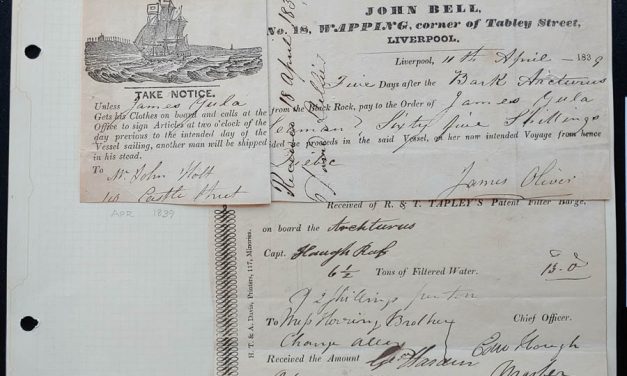 TAKE NOTICE.
Unless James Gula
Gets his Clothes on board and calls at the
Office to sign Articles at two o'clock of the
day previous to the intended day of the
Vessel sailing, another man will be shipped
in his stead.
To
Mr John Holt
Castle Street
APR 1839
Received 18 April 183
JOHN BELL,
No. 18, WAPPING, corner of Tabley Street,
LIVERPOOL.
Liverpool, 11th April 1839
Five Days after the Bark Arcturus
from the Black Rock, pay to the Order of James Gula
Sixty five Shillings
he proceeds in the said Vessel, on her now intended Voyage from hence
James Oliver
Received of R. & T. TAPLEY'S Patent Filter Barge,
on board the Archturus
Capt. Hough
6½ Tons of Filtered Water. 13.0
2 shillings
To Mess Brothers Chief Officer.
Change Alley
Received the Amount
Hough
Master
H. T. & A. Davis, Printers, 117, Minories.